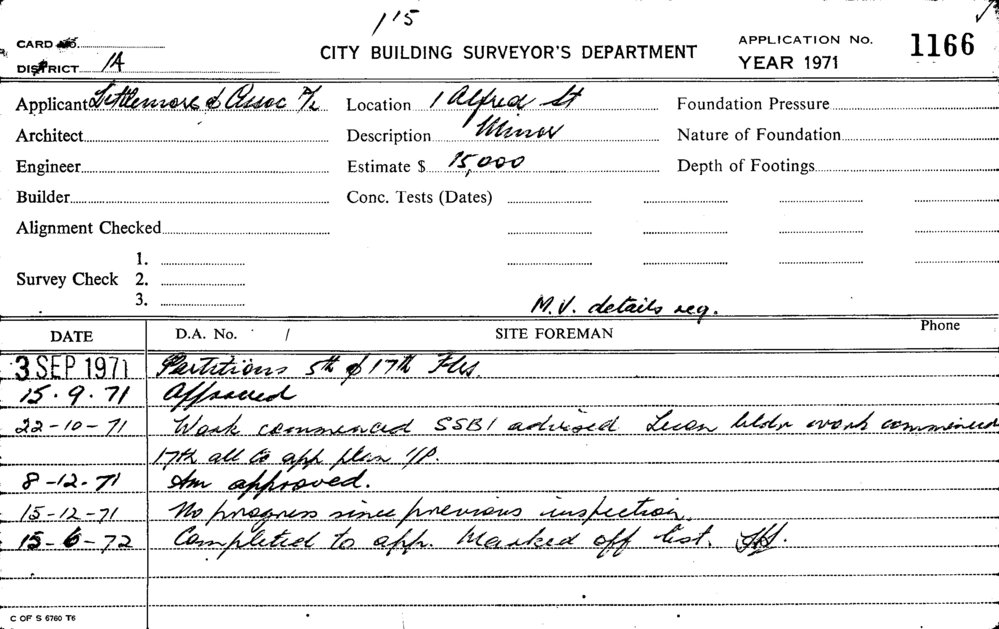 1'5
CARD No.
DISTRICT 1A
CITY BUILDING SURVEYOR'S DEPARTMENT
APPLICATION No. 1166
YEAR 1971
Applicant Littlemore & Assoc P/L Location 1 Alfred St Foundation Pressure
Architect Description Minor Nature of Foundation
Engineer Estimate $ 15,000 Depth of Footings
Builder Conc. Tests (Dates)
Alignment Checked
Survey Check 1.
2.
3.
M.V. details req.
DATE D.A. No. / SITE FOREMAN Phone
3 SEP 1971 Partitions 5th & 17th Flrs.
15.9.71 Approved
22-10-71 Work commenced SSB1 advised bldr work commenced
17th all to app plan I/P.
8-12-71 Am approved.
15-12-71 No progress since previous inspection.
15-6-72 Completed to app. Marked off list.
C OF S 6760 T6